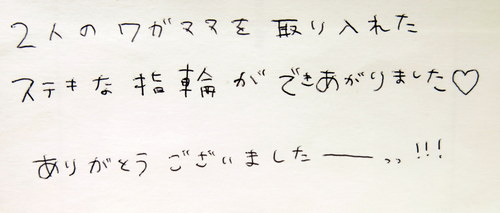 2人のワガママを取り入れた
ステキな指輪ができあがりました♡
ありがとうございましたーっっ!!!